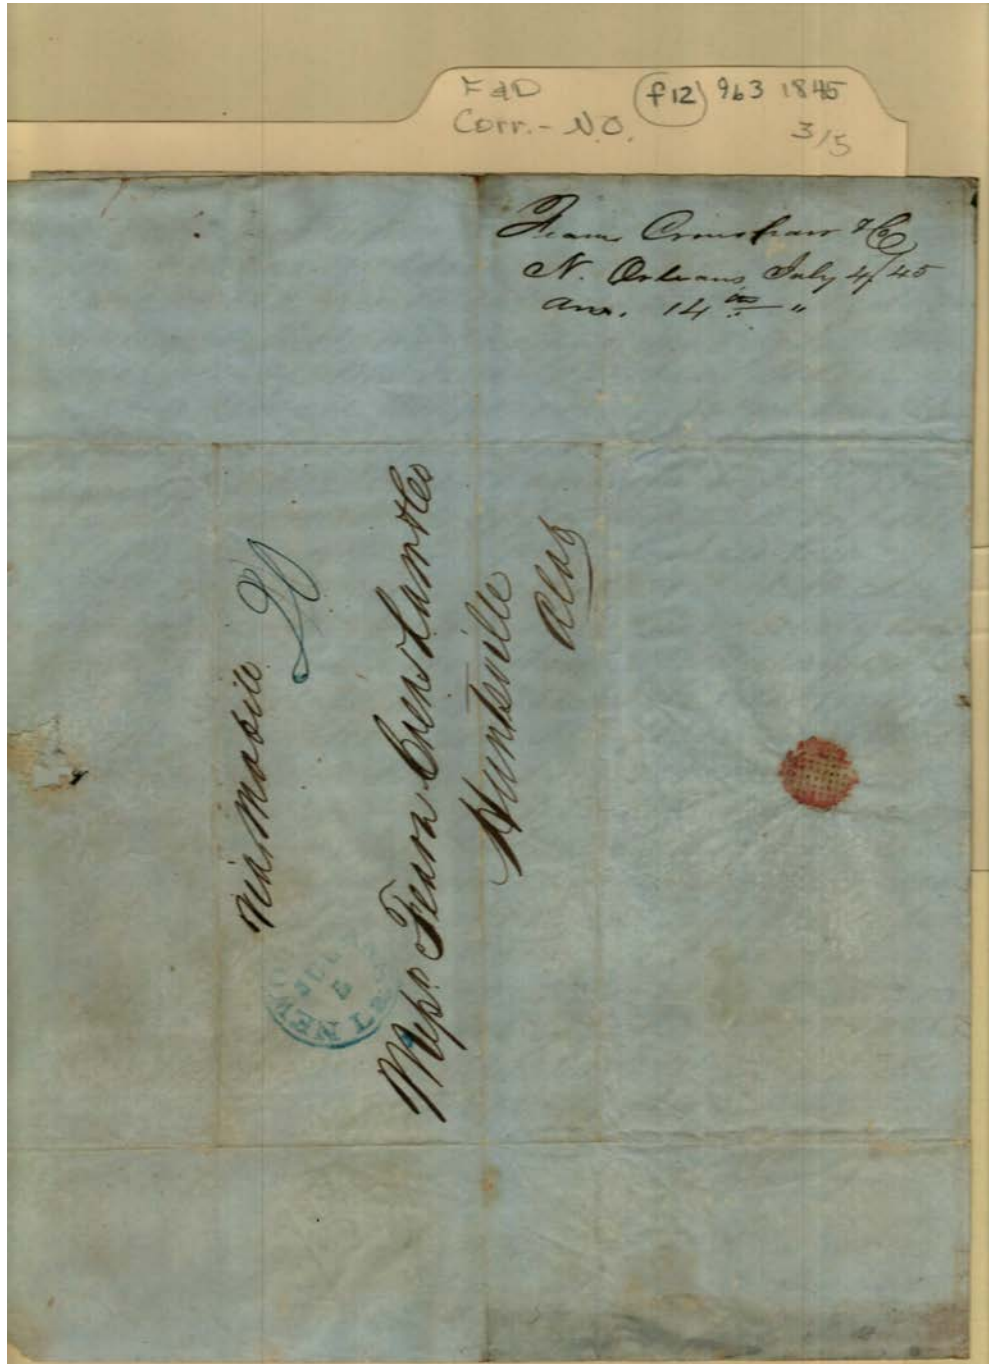 F&D
Corr. - N.O.
(f12) 963 1845
3/5
Fearn Crenshaw & Co
N. Orleans July 4/45
Ans. 14th "
Via Mobile
20
Messrs Fearn Crenshaw & Co
Huntsville
Ala
NEW
JUL
5